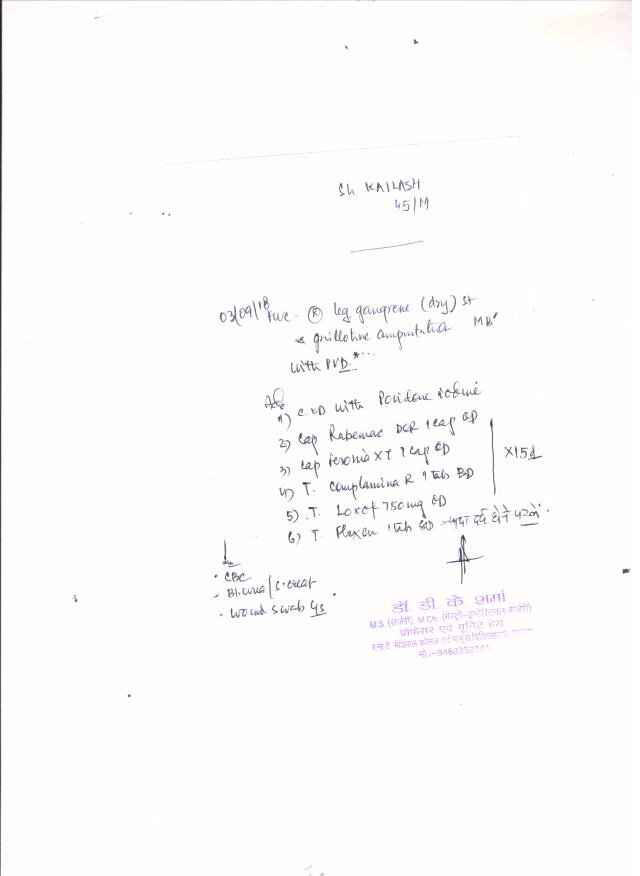 Sh KAILASH
45/M
03/09/18 FUC - (R) leg gangrene (dry) st
guillotine amputation MB
with PVD
Adv
1) C & D with Povidone iodine
2) Cap Rabemac DSR 1 cap OD
3) Cap feronia XT 1 cap OD
4) T. Complamina R 1 tab BD
X15d
5) T. Loxof 750 mg OD
6) T. Flexon 1 tab SOD ज्यादा दर्द होने पर
Inv
• CBC
- Bl. urea / S. creat
- wound swab c/s
डॉ. डी. के. शर्मा
M.S. (सर्जरी), M.Ch. (गेस्ट्रो-इन्टेस्टिनल सर्जरी)
प्रोफेसर एवं यूनिट हेड
मेडिकल कॉलेज एवं
मो.:-9460352744